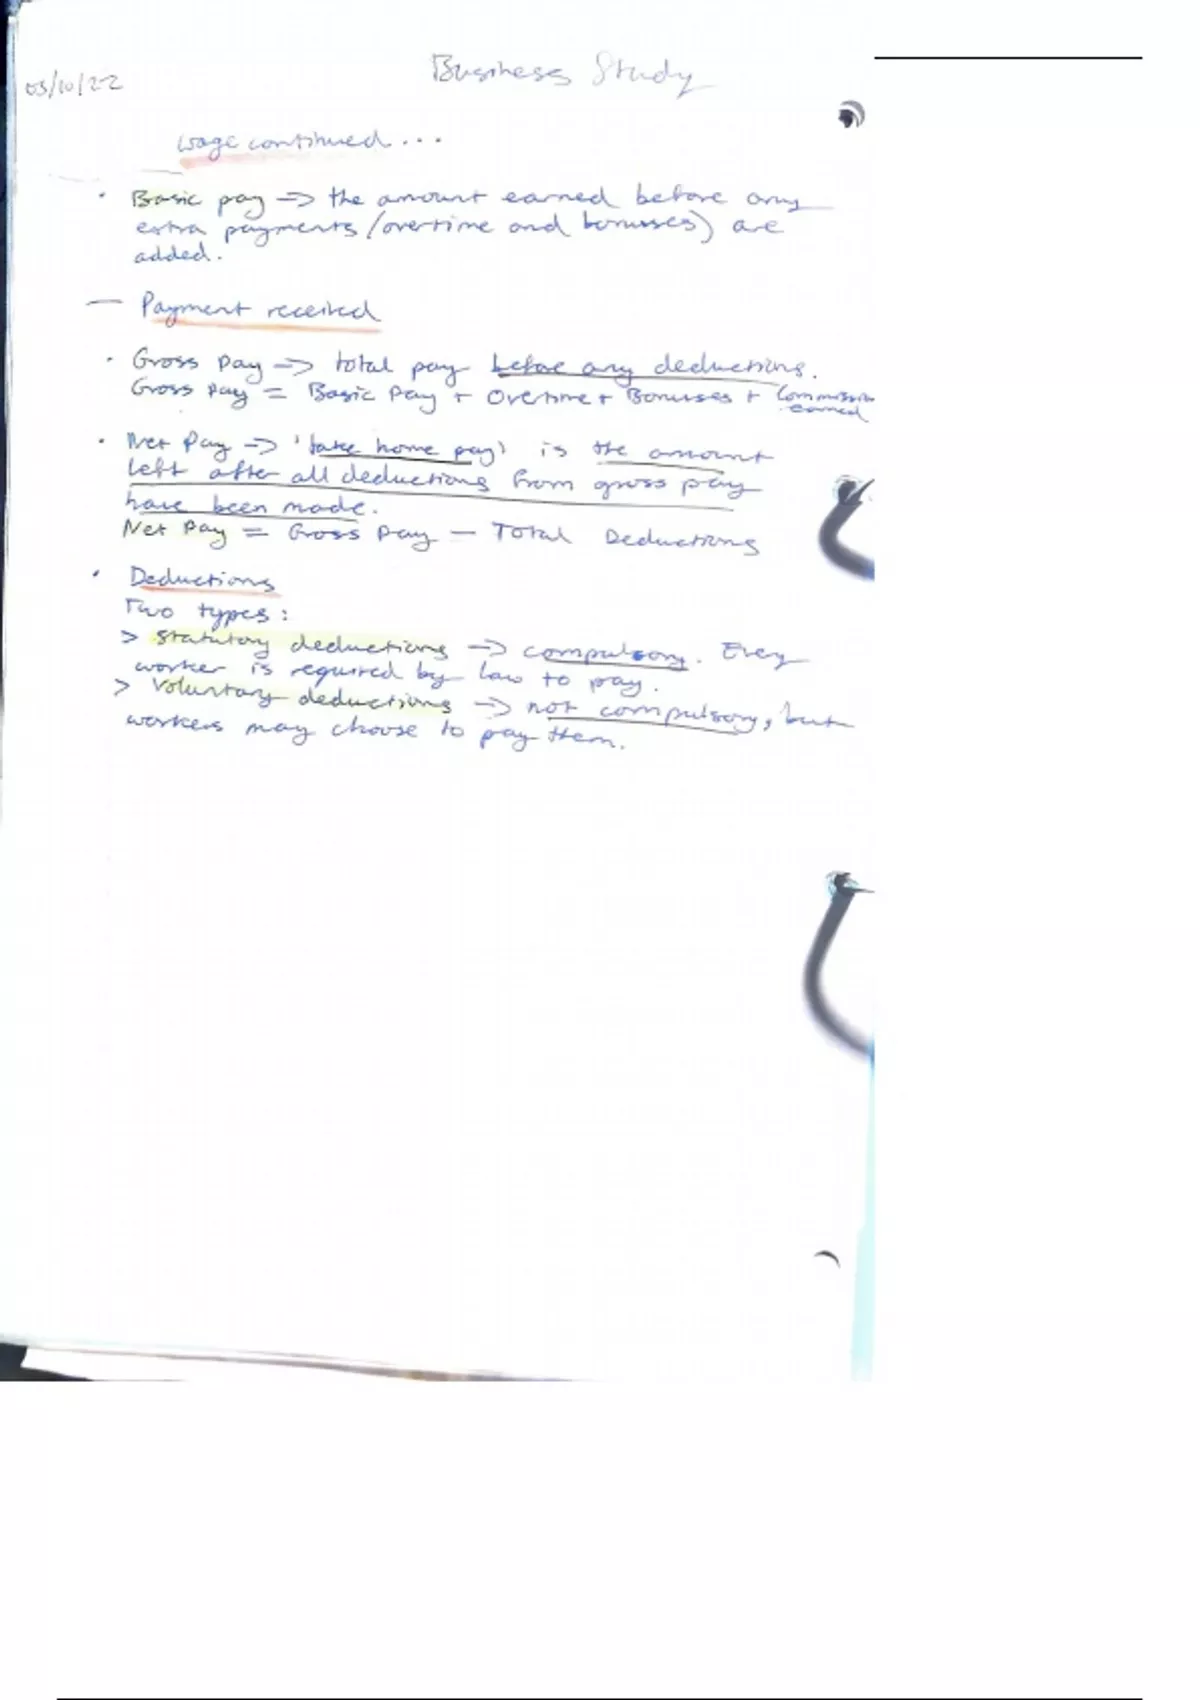 Business Study
03/10/22
wage continued...
• Basic pay -> the amount earned before any
extra payments (overtime and bonusses) are
added.
— Payment received
• Gross Pay -> total pay before any deductions.
Gross Pay = Basic Pay + Overtime + Bonusses + Commission
earned
• Net Pay -> 'take home pay' is the amount
left after all deductions from gross pay
have been made.
Net Pay = Gross Pay — Total Deductions
• Deductions
Two types:
> Statutory deductions -> compulsory. Every
worker is required by law to pay.
> Voluntary deductions -> not compulsory, but
workers may choose to pay them.